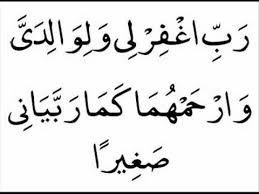 رَبِّ اغْفِرْ لِي وَلِوَالِدَىَّ
وَارْحَمْهُمَا كَمَا رَبَّيَانِى
صَغِيرًا